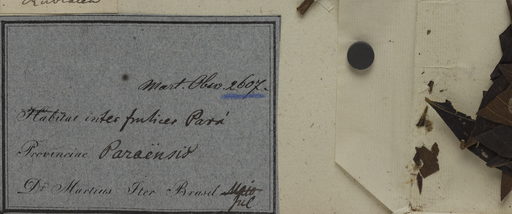 Mart. Obs. 2607.
Habitat inter frutices Pará
Provinciae Paraënsis
Dr Martius Iter Brasil Majo
Jul